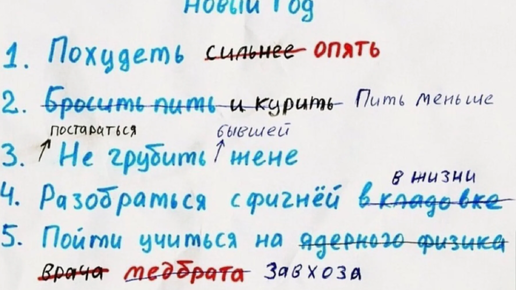 НОВЫЙ ГОД
1. Похудеть сильнее опять
2. Бросить пить и курить Пить меньше
постараться бывшей
3. Не грубить жене
в жизни
4. Разобраться с фигнёй в кладовке
5. Пойти учиться на ядерного физика
врача медбрата завхоза